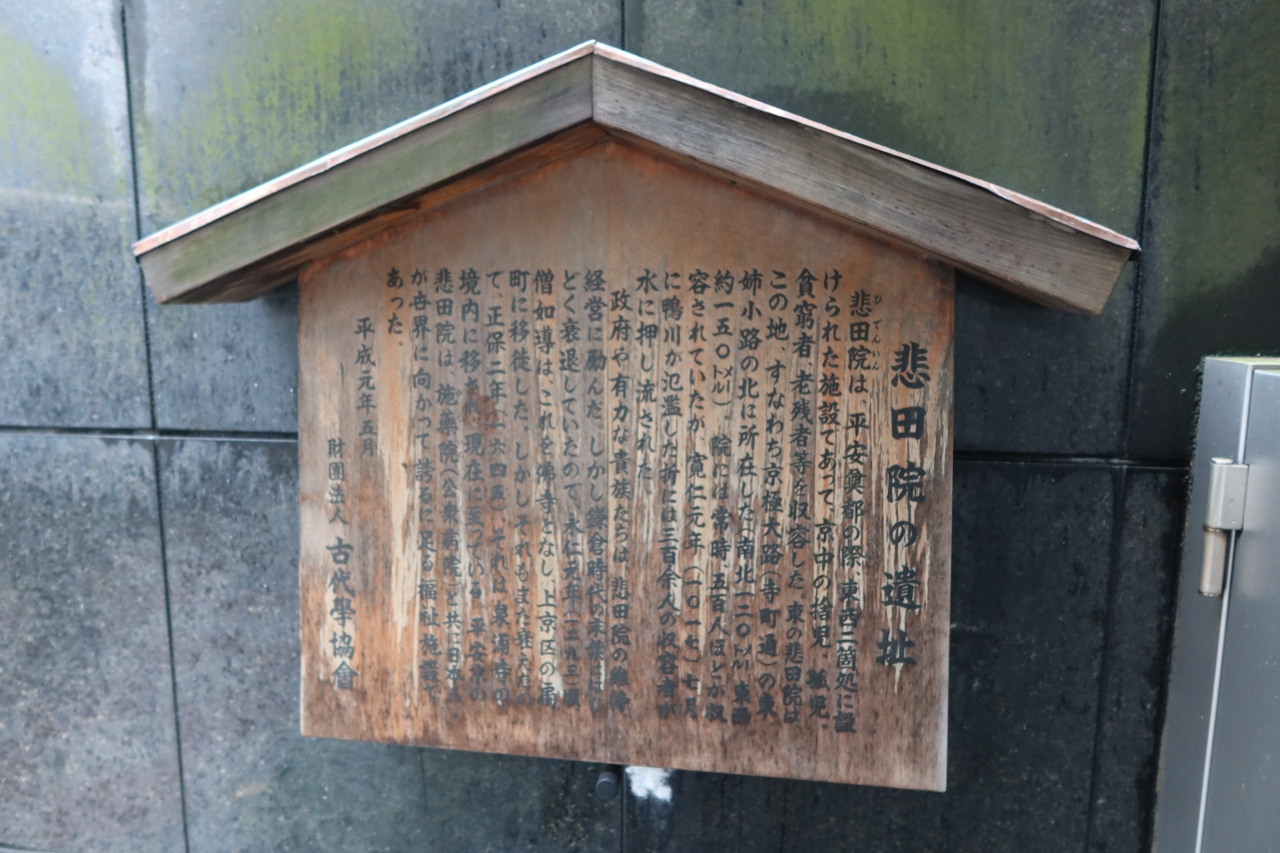 悲田院の遺址
悲田院は、平安奠都の際、東西二箇処に設
ひでんいん
けられた施設であって、京中の捨児、孤児、
貧窮者、老残者等を収容した。東の悲田院は
この地、すなわち京極大路(寺町通)の東
姉小路の北に所在した南北一二〇メートル、東西
約一五〇メートル)院には常時、五百人ほどが収
容されていたが、寛仁元年(一〇一七)七月
に鴨川が氾濫した折には三百余人の収容者が
水に押し流された。
政府や有力な貴族たちは、悲田院の維持
経営に励んだ。しかし鎌倉時代の末葉には
どく衰退していたので、永仁元年(一二九三)頃
僧如導は、これを佛寺となし、上京区の扇
町に移徙した。しかしそれもまた衰えたの
で、正保二年(一六四五)、それは泉涌寺の
境内に移され、現在に至っている。平安京の
悲田院は、施薬院(公衆病院)と共に日本
が世界に向かって誇るに足る福祉施設で
あった。
平成元年五月
財團法人 古代學協會